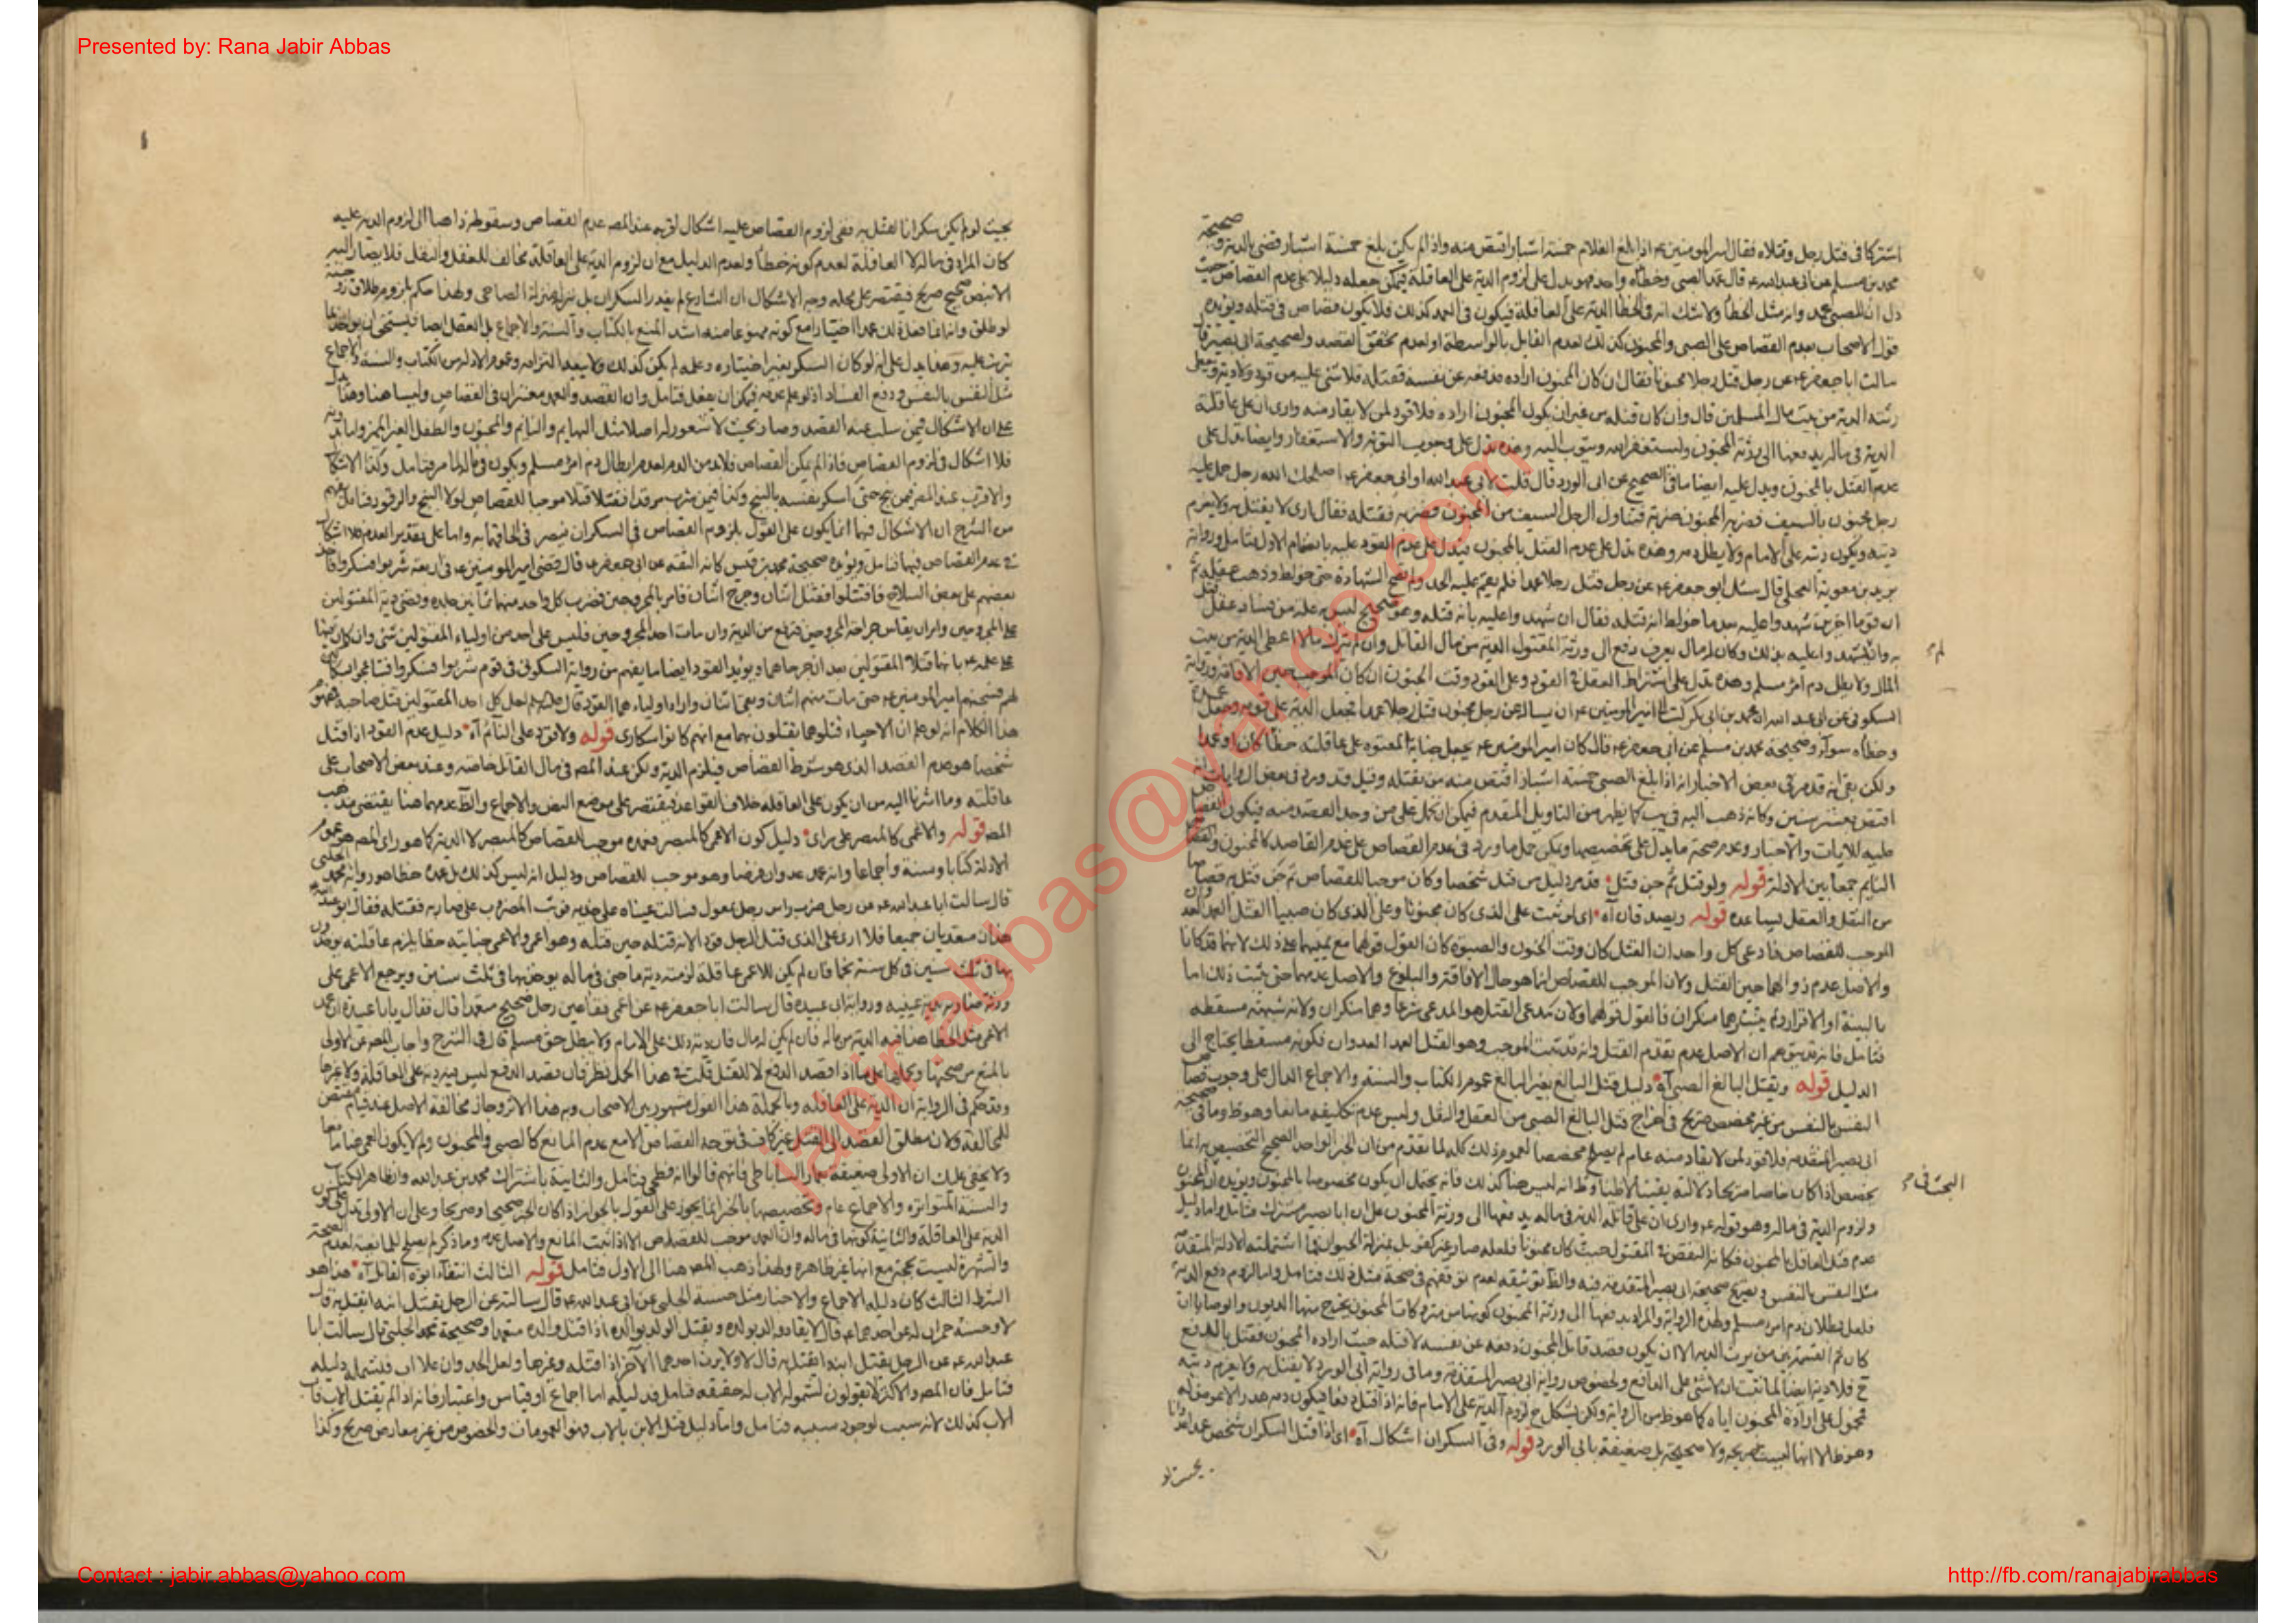 Presented by: Rana Jabir Abbas
اشتركا في قتل رجل وقتلاه فقال امير المؤمنين ع اذا بلغ الغلام خمسة اشبار اقتص منه واذا لم يكن بلغ خمسة اشبار قضى بالدية و صحيحة
محمد بن مسلم عن ابى عبد الله ع قال عمد الصبى وخطأه واحد فهو يدل على لزوم الدية على العاقلة فيمكن جعله دليلا على عدم القصاص حيث
دل ان للصبى عمد وانه مثل الخطأ ولا شك انه فى الخطأ الدية على العاقلة فيكون فى العمد كذلك فلا يكون قصاص فى قتله ويؤيده
قول الاصحاب بعدم القصاص على الصبى والمجنون كذلك لعدم القايل بالواسطة او لعدم تحقق القصد ولصحيحة ابى بصير قال
سالت ابا جعفر ع عن رجل قتل رجلا مجنونا فقال ان كان المجنون اراده فدفعه عن نفسه فقتله فلا شئ عليه من قود ولا دية ويعطى
ورثته الدية من بيت مال المسلمين قال وان كان قتله من غير ان يكون المجنون اراده فلا قود لمن لا يقاد منه وارى ان على عاقلته
الدية فى ماله يدفعها الى ورثة المجنون وليستغفر الله ويتوب اليه وهذه تدل على وجوب التوبة والاستغفار وايضا تدل على
عدم القتل بالمجنون ويدل عليه ايضا ما فى الصحيح عن ابى الورد قال قلت لابى عبد الله او ابى جعفر ع اصلحك الله رجل حمل عليه
رجل مجنون بالسيف فضربه المجنون ضربة فتناول الرجل السيف من المجنون فضربه فقتله فقال ارى لا يقتل به ولا يغرم
ديته ويكون ديته على الامام ولا يطل دمه وهذه تدل على عدم القتل بالمجنون فيدل على عدم القود عليه بانضمام الاول فتامل ورواية
بريد بن معوية العجلى قال سئل ابو جعفر ع عن رجل قتل رجلا عمدا فلم يقم عليه الحد ولم تصح الشهادة حتى خولط وذهب عقله ثم
ان قوما اخرين شهدوا عليه بعد ما خولط انه قتله فقال ان شهدوا عليه بانه قتله وهو صحيح ليس به علة من فساد عقل قتل
به وان لم يشهدوا عليه بذلك وكان له مال يعرف دفع الى ورثة المقتول الدية من مال القاتل وان لم يترك مالا اعطى الدية من بيت
المال ولا يطل دم امرء مسلم وهذه تدل على اشتراط العقل فى القود وعلى القود وقت الجنون ان كان الموجب حين الافاقة ورواية
السكونى عن ابى عبد الله ع ان محمد بن ابى بكر كتب الى امير المؤمنين ع ان يساله عن رجل مجنون قتل رجلا عمدا فجعل الدية على قومه وجعل عمده
وخطأه سواء وصحيحة محمد بن مسلم عن ابى جعفر ع قال كان امير المؤمنين ع يجعل جناية المعتوه على عاقلته خطأ كان او عمدا
ولكن بقى انه قد مر فى بعض الاخبار انه اذا بلغ الصبى خمسة اشبار اقتص منه من يقتله وقيل قد ورد فى بعض الروايات انه
اقتص بعشر سنين وكانه ذهب اليه فى يب كما يظهر من التاويل المتقدم فيمكن ان تحمل على من وجد القصد منه فيكون القصاص
عليه للايات والاخبار وعدم صحة ما يدل على تخصيصها ويمكن حمل ما ورد فى عدم القصاص على عدم القاصد كالمجنون والصبى
النايم جمعا بين الادلة قوله ولو قتل ثم جن قتل قد مر دليل من قتل شخصا وكان موجبا للقصاص ثم جن قتل به قصاصا
من النقل والعقل يساعده قوله ويصدقان آه اى لو ثبت على الذى كان مجنونا وعلى الذى كان صبيا القتل العمد
الموجب للقصاص فادعى كل واحد ان القتل كان وقت الجنون والصبوة كان القول قولهما مع يمينهما على ذلك لانهما قد كانا
والاصل عدم زوالهما حين القتل ولان الموجب للقصاص انما هو حال الافاقة والبلوغ والاصل عدمهما حتى يثبت ذلك اما
بالبينة او الاقرار ولم يثبتا وهما منكران فالقول قولهما ولان مدعى القتل هو المدعى شرعا وهما منكران ولانه شبهة مسقطة
فتامل فانه قد يتوهم ان الاصل عدم تقدم القتل وانه قد ثبت الموجب وهو القتل العمد العدوان فكونه مسقطا يحتاج الى
الدليل قوله ويقتل البالغ بالصبى آه دليل قتل البالغ بغير البالغ عموم الكتاب والسنة والاجماع الدال على وجوب قصاص
النفس بالنفس من غير مخصص صريح فى اخراج قتل البالغ الصبى من العقل والنقل وليس عدم تكليفه مانعا وهو ظ وما فى صحيحة
ابى بصير المتقدمة فلا قود لمن لا يقاد منه عام لم يصلح مخصصا لعموم ذلك كله لما تقدم من ان الخبر الواحد الصحيح التخصيص به انما
يخصص اذا كان خاصا صريحا دلالته يقينا لا ظنا وظ انه ليس هنا كذلك فانه يحتمل ان يكون مخصوصا بالمجنون ويؤيده ان المجنون
ولزوم الدية فى ماله وهو قوله ع وارى ان على قاتله الدية فى ماله يدفعها الى ورثة المجنون على ان ابا بصير مشترك فتامل واما دليل
عدم قتل العاقل بالمجنون فكانه النقص فى المقتول حيث كان مجنونا فلعله صار غير كفو بل بمنزلة الحيوان فما اشتملته الادلة المتقدمة
مثل النفس بالنفس وبصريح صحيحة ابى بصير المتقدمة فيه والظ توثيقه لعدم توقفهم فى صحة مثل ذلك فتامل واما لزوم دفع الدية
فلعل بطلان دم امرء مسلم ولهذه الرواية والمراد يدفعها الى ورثة المجنون كونها من متروكات المجنون يخرج منها الديون والوصايا ان
كان ثم القسمة بين من يرث الدية الا ان يكون قصد قاتل المجنون دفعه عن نفسه لا قتله حيث اراده المجنون فقتل بالدفع
ح فلا دية ايضا لما ثبت ان لا شئ على الدافع ولخصوص رواية ابى بصير المتقدمة وما فى رواية ابى الورد لا يقتل به ولا يغرم ديته
محمول على ارادة المجنون اياه كما هو ظ من الرواية ولكن يشكل ح لزوم الدية على الامام فانه اذا قتل دفعا فيكون دمه هدرا لا عوض له
وهو ظ الا انها ليست صريحة ولا صحيحة بل ضعيفة بابى الورد قوله وفى السكران اشكال آه اى اذا قتل السكران شخصا عمدا
لم
البحث فى
بحيث لو
بحيث لو لم يكن سكرانا لقتل به ففى لزوم القصاص عليه اشكال لقربه عند المص عدم القصاص وسقوطه ذاهبا الى لزوم الدية عليه
كان المراد فى ماله لا العاقلة لعدم كونه خطأ ولعدم الدليل مع ان لزوم الدية على العاقلة مخالف للعقل والنقل فلا يصار اليه
الا بنص صحيح صريح فيقتصر على محله وجه الاشكال ان الشارع لم يعذر السكران بل نزله منزلة الصاحى ولهذا حكم بلزوم طلاق زوجته
لو طلق وانه انما فعل ذلك عمدا اختيارا مع كونه ممنوعا منه اشد المنع بالكتاب والسنة والاجماع بل العقل ايضا فيستحق ان يؤاخذ بما
يترتب عليه وهذا يدل على انه لو كان السكر بغير اختياره وعلمه لم يكن كذلك ولا يبعد التزامه وعموم الادلة من الكتاب والسنة والاجماع
مثل النفس بالنفس ودفع الفساد اذ لو علم عدمه فيمكن ان يفعل فتامل وان القصد والعمد معتبران فى القصاص وليسا هنا وهذا يدل
على ان الاشكال فيمن سلب عنه القصد وصار بحيث لا شعور له اصلا مثل البهايم والنايم والمجنون والطفل الغير المميز واما بدونه
فلا اشكال فى لزوم القصاص فاذا لم يكن القصاص فلا بد من الدية لعدم ابطال دم امرء مسلم ويكون فى ماله لما مر فتامل وكذا الاشكال
والاقرب عند المص فيمن بنج حتى اسكر نفسه بالبنج وكذا فيمن شرب مرقدا فقتلا قتلا موجبا للقصاص لولا البنج والرقود فتامل يفهم
من الشرح ان الاشكال فيهما انما يكون على القول بلزوم القصاص فى السكران فيصير فى الحاقهما به واما على تقدير العدم فلا اشكال
فى عدم القصاص فيهما فتامل ويؤيده صحيحة محمد بن قيس كانه الثقة عن ابى جعفر ع قال قضى امير المؤمنين ع فى اربعة شربوا فسكروا فاخذ
بعضهم على بعض السلاح فاقتتلوا فقتل اثنان وجرح اثنان فامر بالمجروحين فضرب كل واحد منهما ثمانين جلدة وقضى دية المقتولين
على المجروحين وامر ان يقاس جراحة المجروحين فترفع من الدية وان مات احد المجروحين فليس على احد من اولياء المقتولين شئ وان كان فيها
على علمه ع بانهما قتلا المقتولين بعد ان جرحاهما ويؤيد القود ايضا ما يفهم من رواية السكونى فى قوم شربوا فسكروا فتباعجوا بسكاكين
لهم فسجنهم امير المؤمنين ع حتى مات منهم اثنان وبقى اثنان واراد اولياءهما القود قال ع لعل كل احد المقتولين قتل صاحبه مفهوم
هذا الكلام انه لو علم ان الاحياء قتلوهما يقتلون بهما مع انهم كانوا سكارى قوله ولا قود على النائم آه دليل عدم القود اذا قتل
شخصا هو عدم القصد الذى هو شرط القصاص فيلزم الدية ولكن عند المص فى مال القاتل خاصة وعند بعض الاصحاب على
عاقلته وما اشرنا اليه من ان يكون على العاقلة خلاف القواعد فيقتصر على موضع النص والاجماع والظ عدمهما هنا يقتضى مذهب
المص قوله والاعمى كالمبصر على راى دليل كون الاعمى كالمبصر فعمده موجب للقصاص كالمبصر لا الدية كما هو راى المص هو عموم
الادلة كتابا وسنة واجماعا وانه عمد عدوان فرضا وهو موجب للقصاص ودليل انه ليس كذلك بل عمده خطا هو رواية محمد الحلبى
قال سالت ابا عبد الله ع عن رجل ضرب راس رجل بمعول فسالت عيناه على خديه فوثب المضروب على ضاربه فقتله فقال ابو عبد الله ع
هذان متعديان جميعا فلا ارى على الذى قتل الرجل قودا لانه قتله حين قتله وهو اعمى والاعمى جنايته خطا يلزم عاقلته يؤخذون
بها فى ثلث سنين فى كل سنة نجما فان لم يكن للاعمى عاقلة لزمته دية ما جنى فى ماله يؤخذ بها فى ثلث سنين ويرجع الاعمى على
ورثة ضاربه بدية عينيه ورواية ابى عبيدة قال سالت ابا جعفر ع عن اعمى فقأ عين رجل صحيح متعمدا قال فقال يا ابا عبيدة ان عمد
الاعمى مثل الخطا هذا فيه الدية من ماله فان لم يكن له مال فان دية ذلك على الامام ولا يبطل حق مسلم قال فى الشرح واجاب المص عن الاولى
بالمنع من صحتها وبحملها على ما اذا قصد الدفع لا للقتل قلت فى هذا الحمل نظر فان قصد الدفع ليس فيه دية على العاقلة ولا غيرها
وقد حكم فى الرواية ان الدية على العاقلة وبالجملة هذا القول مشهور بين الاصحاب وبه هذا الاثر وجاز مخالفة الاصل عند قيام مقتضى
المخالفة ولان مطلق القصد الى القتل غير كاف فى توجه القصاص الا مع عدم المانع كالصبى والمجنون ولم لا يكون العمى هنا مانعا
ولا يخفى عليك ان الاولى ضعيفة بعمار الساباطى فانهم قالوا انه فطحى فتامل والثانية باشتراك محمد بن عبد الله وان ظاهر الكتاب
والسنة المتواترة والاجماع عام وتخصيصها بالخبر انما يجوز على القول بالجواز اذا كان الخبر صحيحا وصريحا وعلى ان الاولى تدل على كون
الدية على العاقلة والثانية كونها فى ماله وان العمد موجب للقصاص الا اذا ثبت المانع والاصل عدمه وما ذكر لم يصلح للمانعية لعدم الصحة
والشهرة ليست بحجة مع انها غير ظاهرة ولهذا ذهب المص هنا الى الاول فتامل قوله الثالث انتفاء ابوة القاتل آه هذا هو
الشرط الثالث كان دليله الاجماع والاخبار مثل حسنة الحلبى عن ابى عبد الله ع قال سالته عن الرجل يقتل ابنه ايقتل به قال
لا وحسنة حمران عن احدهما ع قال لا يقاد والد بولده ويقتل الولد بوالده اذا قتل والده متعمدا وصحيحة محمد الحلبى قال سالت ابا
عبد الله ع عن الرجل يقتل ابنه ايقتل به قال لا ولا يرث احدهما الآخر اذا قتله وغيرها ولعل الجد وان علا اب فليشمله دليله
فتامل فان المص والاكثر يقولون لشموله الاب له حقيقة فتامل فدليله اما اجماع او قياس واعتبار فانه اذا لم يقتل الاب فاب
الاب كذلك لانه سبب لوجود سببه فتامل واما دليل قتل الابن بالاب فهو العمومات والخصوص من غير معارض صريح وكذا
jabir.abbas@yahoo.com
Contact : jabir.abbas@yahoo.com
http://fb.com/ranajabirabbas